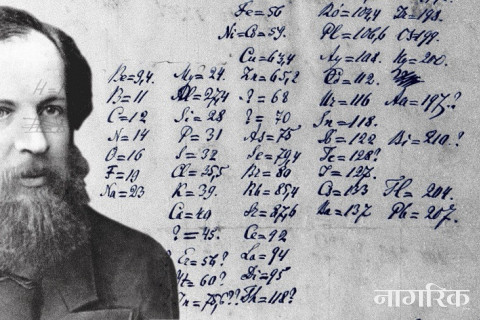 Fe=56 Ro=104,4 Ir=198.
Ni=Co=59. Pl=106,6 Os=199.
Cu=63,4 Ag=108. Hg=200.
Be=9,4. Mg=24. Zn=65,2 Cd=112.
B=11 Al=27,4 ?=68 Ur=116 Au=197?
C=12 Si=28 ?=70 Sn=118.
N=14 P=31 As=75 Sb=122 Bi=210?
O=16 S=32 Se=79,4 Te=128?
F=19 Cl=35,5 Br=80 J=127.
Na=23 K=39. Rb=85,4 Cs=133 Tl=204.
Ca=40 Sr=87,6 Ba=137 Pb=207.
?=45. Ce=92
Er=56? La=94
Yt=60? Di=95
In=75,6?? Th=118?
नागरिक